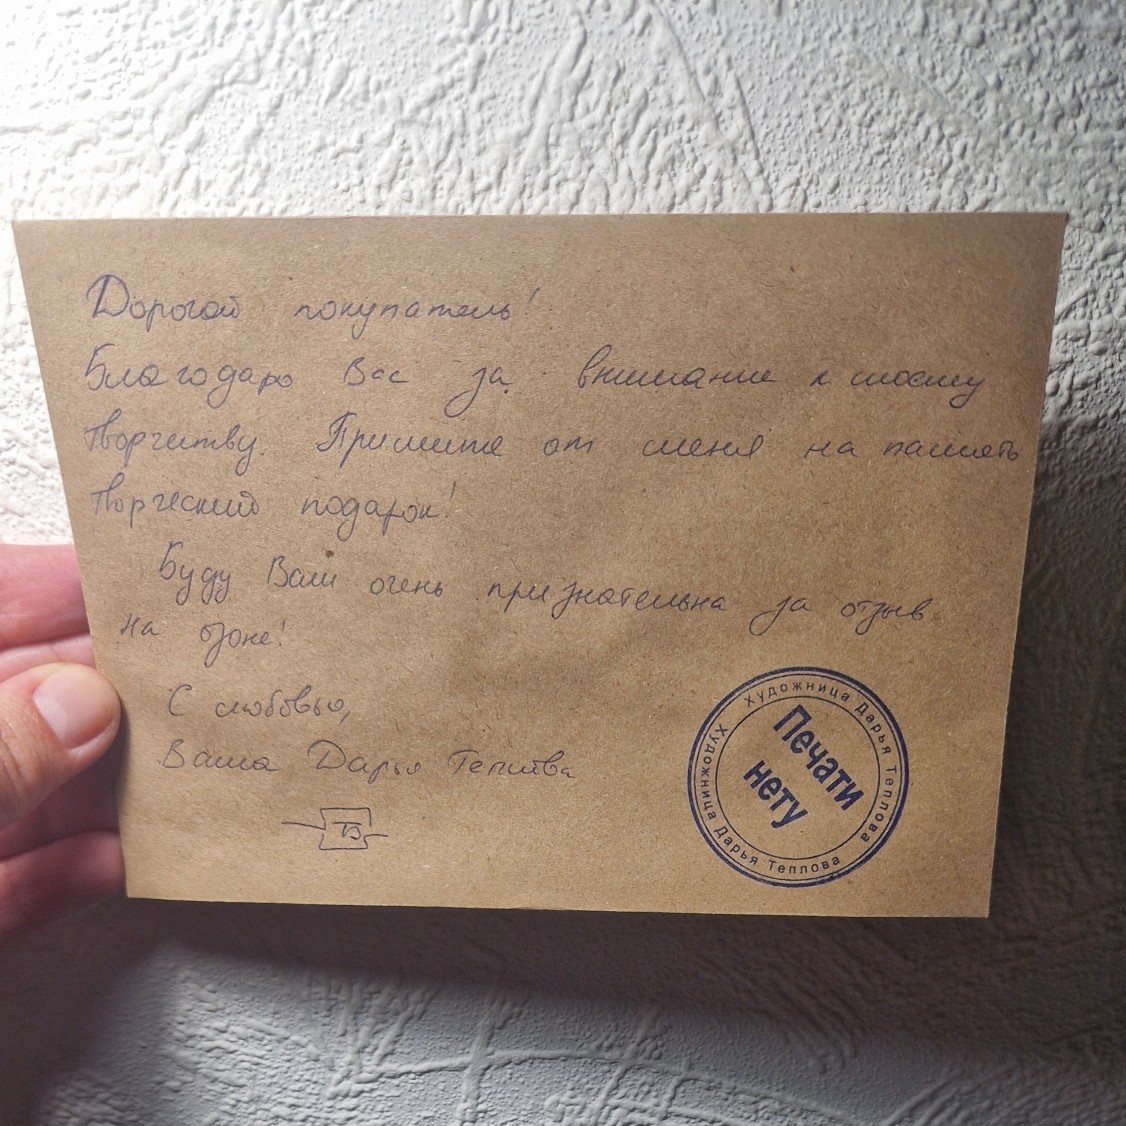 Дорогой покупатель!
Благодарю Вас за внимание к моему
творчеству. Примите от меня на память
творческий подарок!
Буду Вам очень признательна за отзыв
на озоне!
С любовью,
Ваша Дарья Теплова
Художница Дарья Теплова
Художница Дарья Теплова
Печати
нету